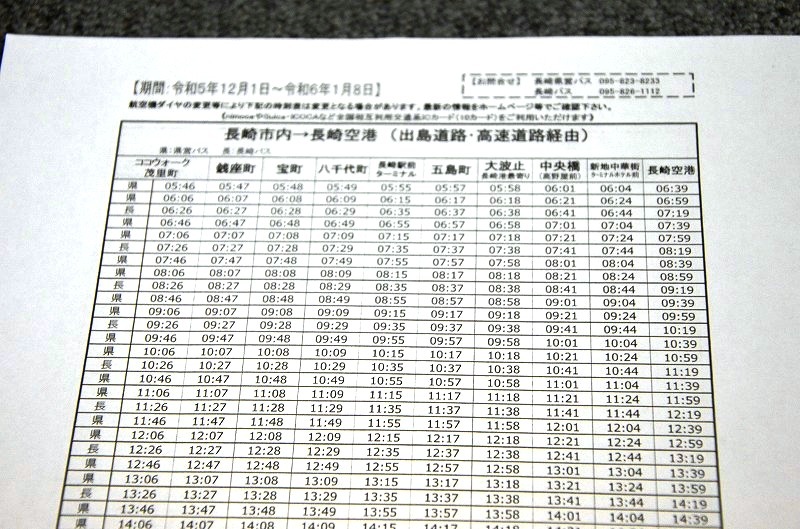 【期間:令和5年12月1日～令和6年1月8日】
【お問合せ】 長崎県営バス 095-823-8233
長崎バス 095-826-1112
航空機ダイヤの変更等により下記の時刻表は変更となる場合があります。最新の情報をホームページ等でご確認下さい。
《nimocaやSuica・ICOCAなど全国相互利用交通系ICカード(10カード)をご利用いただけます》
長崎市内→長崎空港 (出島道路・高速道路経由)
県:県営バス 長:長崎バス
ココウォーク茂里町 銭座町 宝町 八千代町 長崎駅前ターミナル 五島町 大波止 長崎港最寄り 中央橋 (高野屋前) 新地中華街 ターミナルホテル前 長崎空港
県 05:46 05:47 05:48 05:49 05:55 05:57 05:58 06:01 06:04 06:39
県 06:06 06:07 06:08 06:09 06:15 06:17 06:18 06:21 06:24 06:59
長 06:26 06:27 06:28 06:29 06:35 06:37 06:38 06:41 06:44 07:19
県 06:46 06:47 06:48 06:49 06:55 06:57 06:58 07:01 07:04 07:39
県 07:06 07:07 07:08 07:09 07:15 07:17 07:18 07:21 07:24 07:59
長 07:26 07:27 07:28 07:29 07:35 07:37 07:38 07:41 07:44 08:19
県 07:46 07:47 07:48 07:49 07:55 07:57 07:58 08:01 08:04 08:39
県 08:06 08:07 08:08 08:09 08:15 08:17 08:18 08:21 08:24 08:59
長 08:26 08:27 08:28 08:29 08:35 08:37 08:38 08:41 08:44 09:19
県 08:46 08:47 08:48 08:49 08:55 08:57 08:58 09:01 09:04 09:39
県 09:06 09:07 09:08 09:09 09:15 09:17 09:18 09:21 09:24 09:59
長 09:26 09:27 09:28 09:29 09:35 09:37 09:38 09:41 09:44 10:19
県 09:46 09:47 09:48 09:49 09:55 09:57 09:58 10:01 10:04 10:39
県 10:06 10:07 10:08 10:09 10:15 10:17 10:18 10:21 10:24 10:59
長 10:26 10:27 10:28 10:29 10:35 10:37 10:38 10:41 10:44 11:19
県 10:46 10:47 10:48 10:49 10:55 10:57 10:58 11:01 11:04 11:39
県 11:06 11:07 11:08 11:09 11:15 11:17 11:18 11:21 11:24 11:59
長 11:26 11:27 11:28 11:29 11:35 11:37 11:38 11:41 11:44 12:19
県 11:46 11:47 11:48 11:49 11:55 11:57 11:58 12:01 12:04 12:39
県 12:06 12:07 12:08 12:09 12:15 12:17 12:18 12:21 12:24 12:59
長 12:26 12:27 12:28 12:29 12:35 12:37 12:38 12:41 12:44 13:19
県 12:46 12:47 12:48 12:49 12:55 12:57 12:58 13:01 13:04 13:39
県 13:06 13:07 13:08 13:09 13:15 13:17 13:18 13:21 13:24 13:59
長 13:26 13:27 13:28 13:29 13:35 13:37 13:38 13:41 13:44 14:19
県 13:46 13:47 13:48 13:49 13:55 13:57 13:58 14:01 14:04 14:39
県 14:06 14:07 14:08 14:09 14:15 14:17 14:18 14:21 14:24